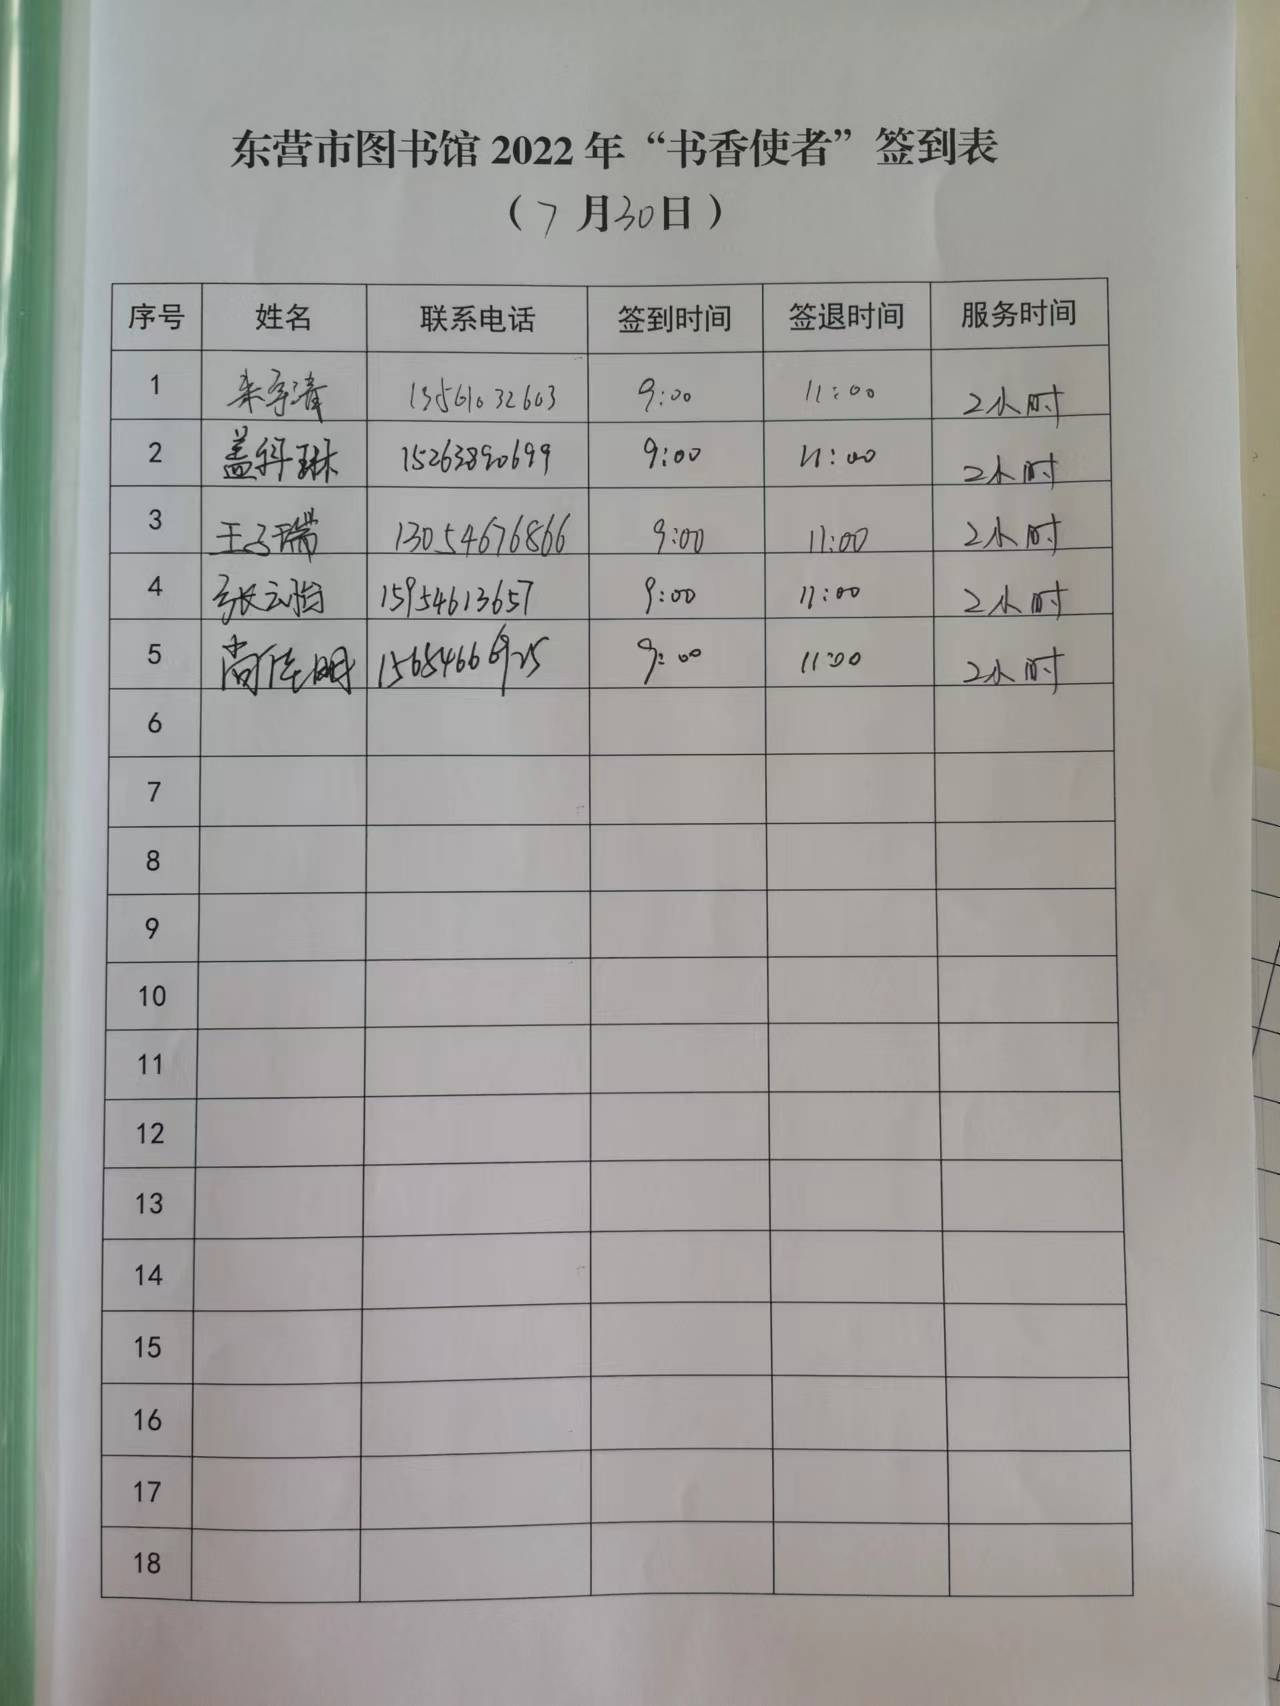 东营市图书馆 2022 年“书香使者”签到表
（7 月30日）
序号 姓名 联系电话 签到时间 签退时间 服务时间
1 9:00 11:00 2小时
2 盖释琳 15263890699 9:00 11:00 2小时
3 王子瑞 13054676866 9:00 11:00 2小时
4 张云怡 15954613657 9:00 11:00 2小时
5 尚佳明 9:00 11:00 2小时
6
7
8
9
10
11
12
13
14
15
16
17
18